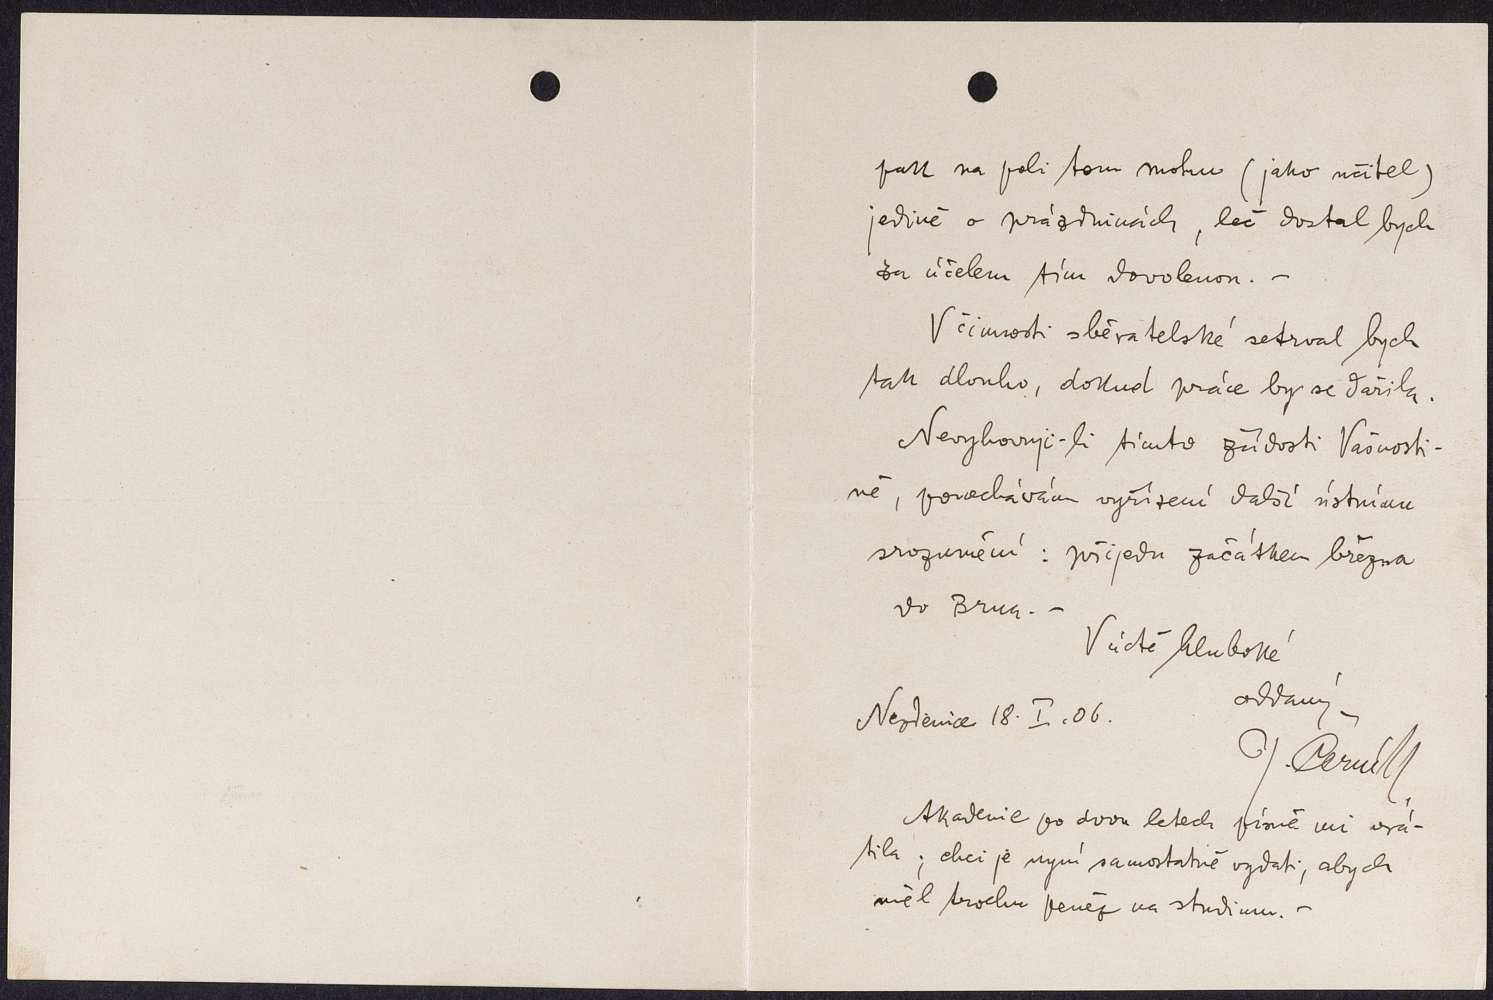 pak na poli tom mohu (jako učitel)
jedině o prázdninách, leč dostal bych
za účelem tím dovolenou. –
V činnosti sběratelské setrval bych
tak dlouho, dokud práce by se dařila.
Nevyhovuji-li tímto žádosti Vašnosti-
ně, ponechávám vyřízení další ústnímu
srozumění: přijedu začátkem března
do Brna. –
V úctě hluboké
oddaný
Nezdenice 18. I. 06.
J. Černík
Akademie po dvou letech písně mi vrá-
tila; chci je nyní samostatně vydati, abych
měl trochu peněz na studium. –